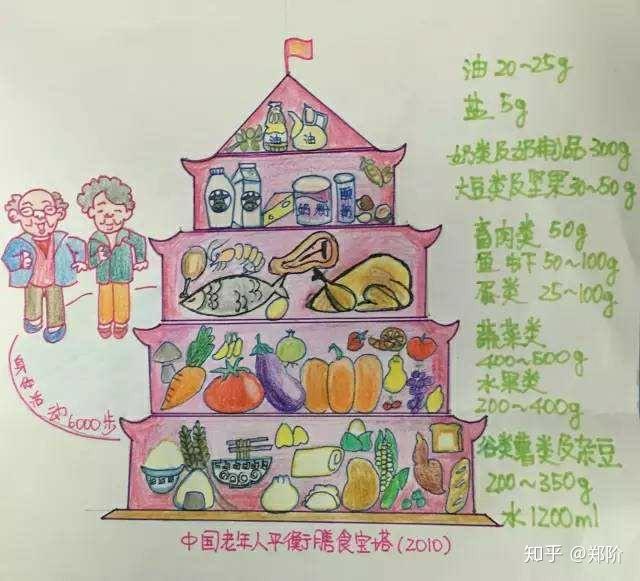 油 20~25g
盐 5g
奶类及奶制品 300g
大豆类及坚果 30~50g
畜肉类 50g
鱼虾 50~100g
蛋类 25~100g
蔬菜类
400~500g
水果类
200~400g
谷类薯类及杂豆
200~350g
水 1200ml
油
油
奶粉
酸奶
身体活动6000步
中国老年人平衡膳食宝塔(2010)
知乎 @郑阶